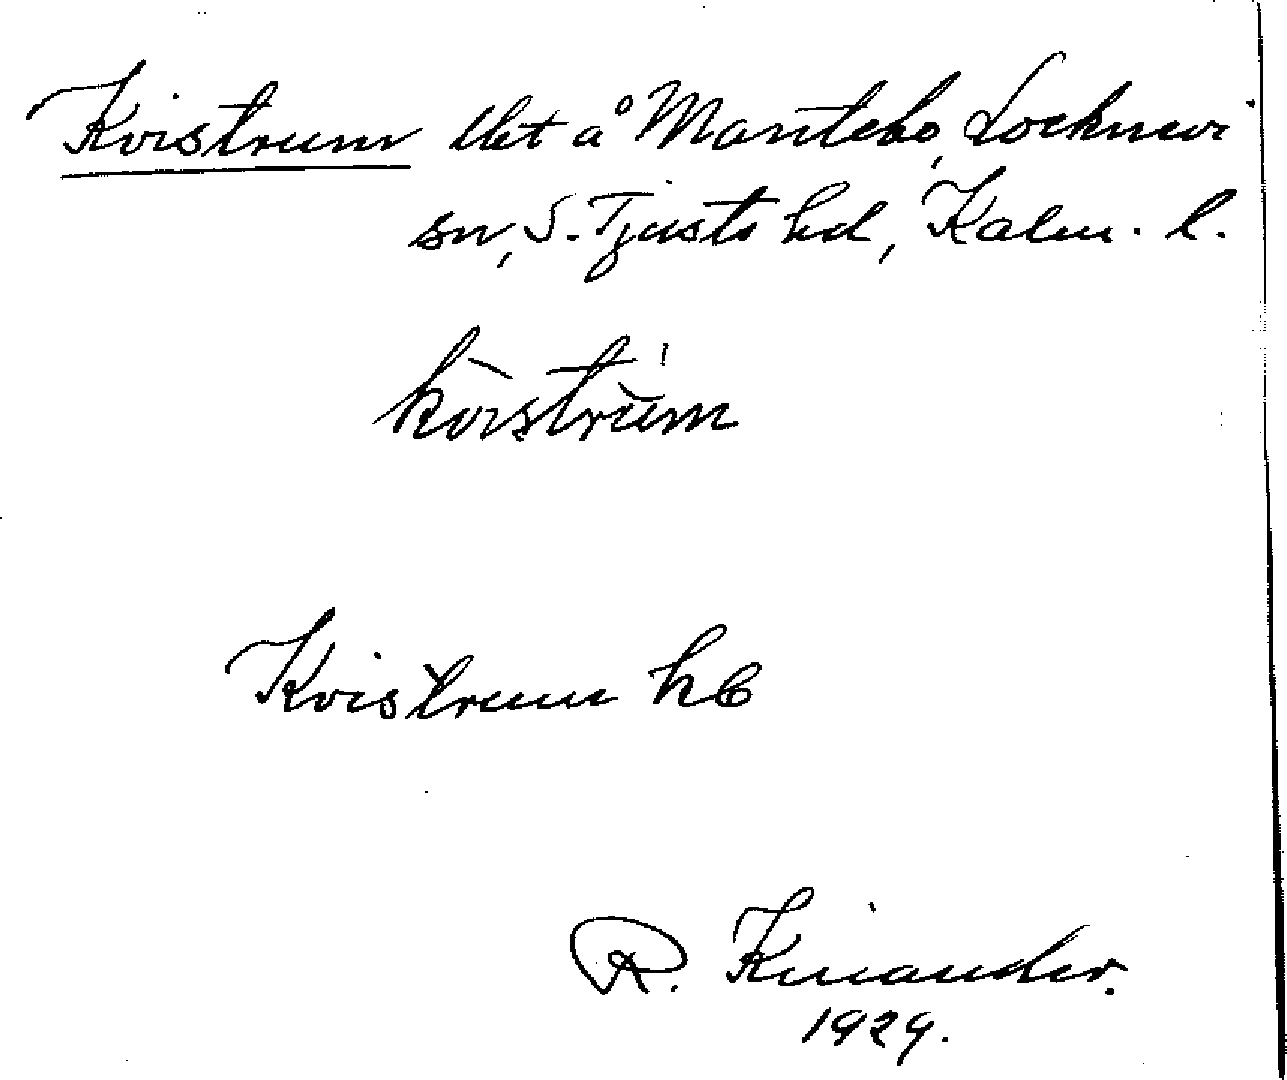 Kvistrum lht å Mantebo, Locknevi
sn, S. Tjusts hd, Kalm. l.
kvìstrùm
Kvistrum hC
R. Kinander.
1929.